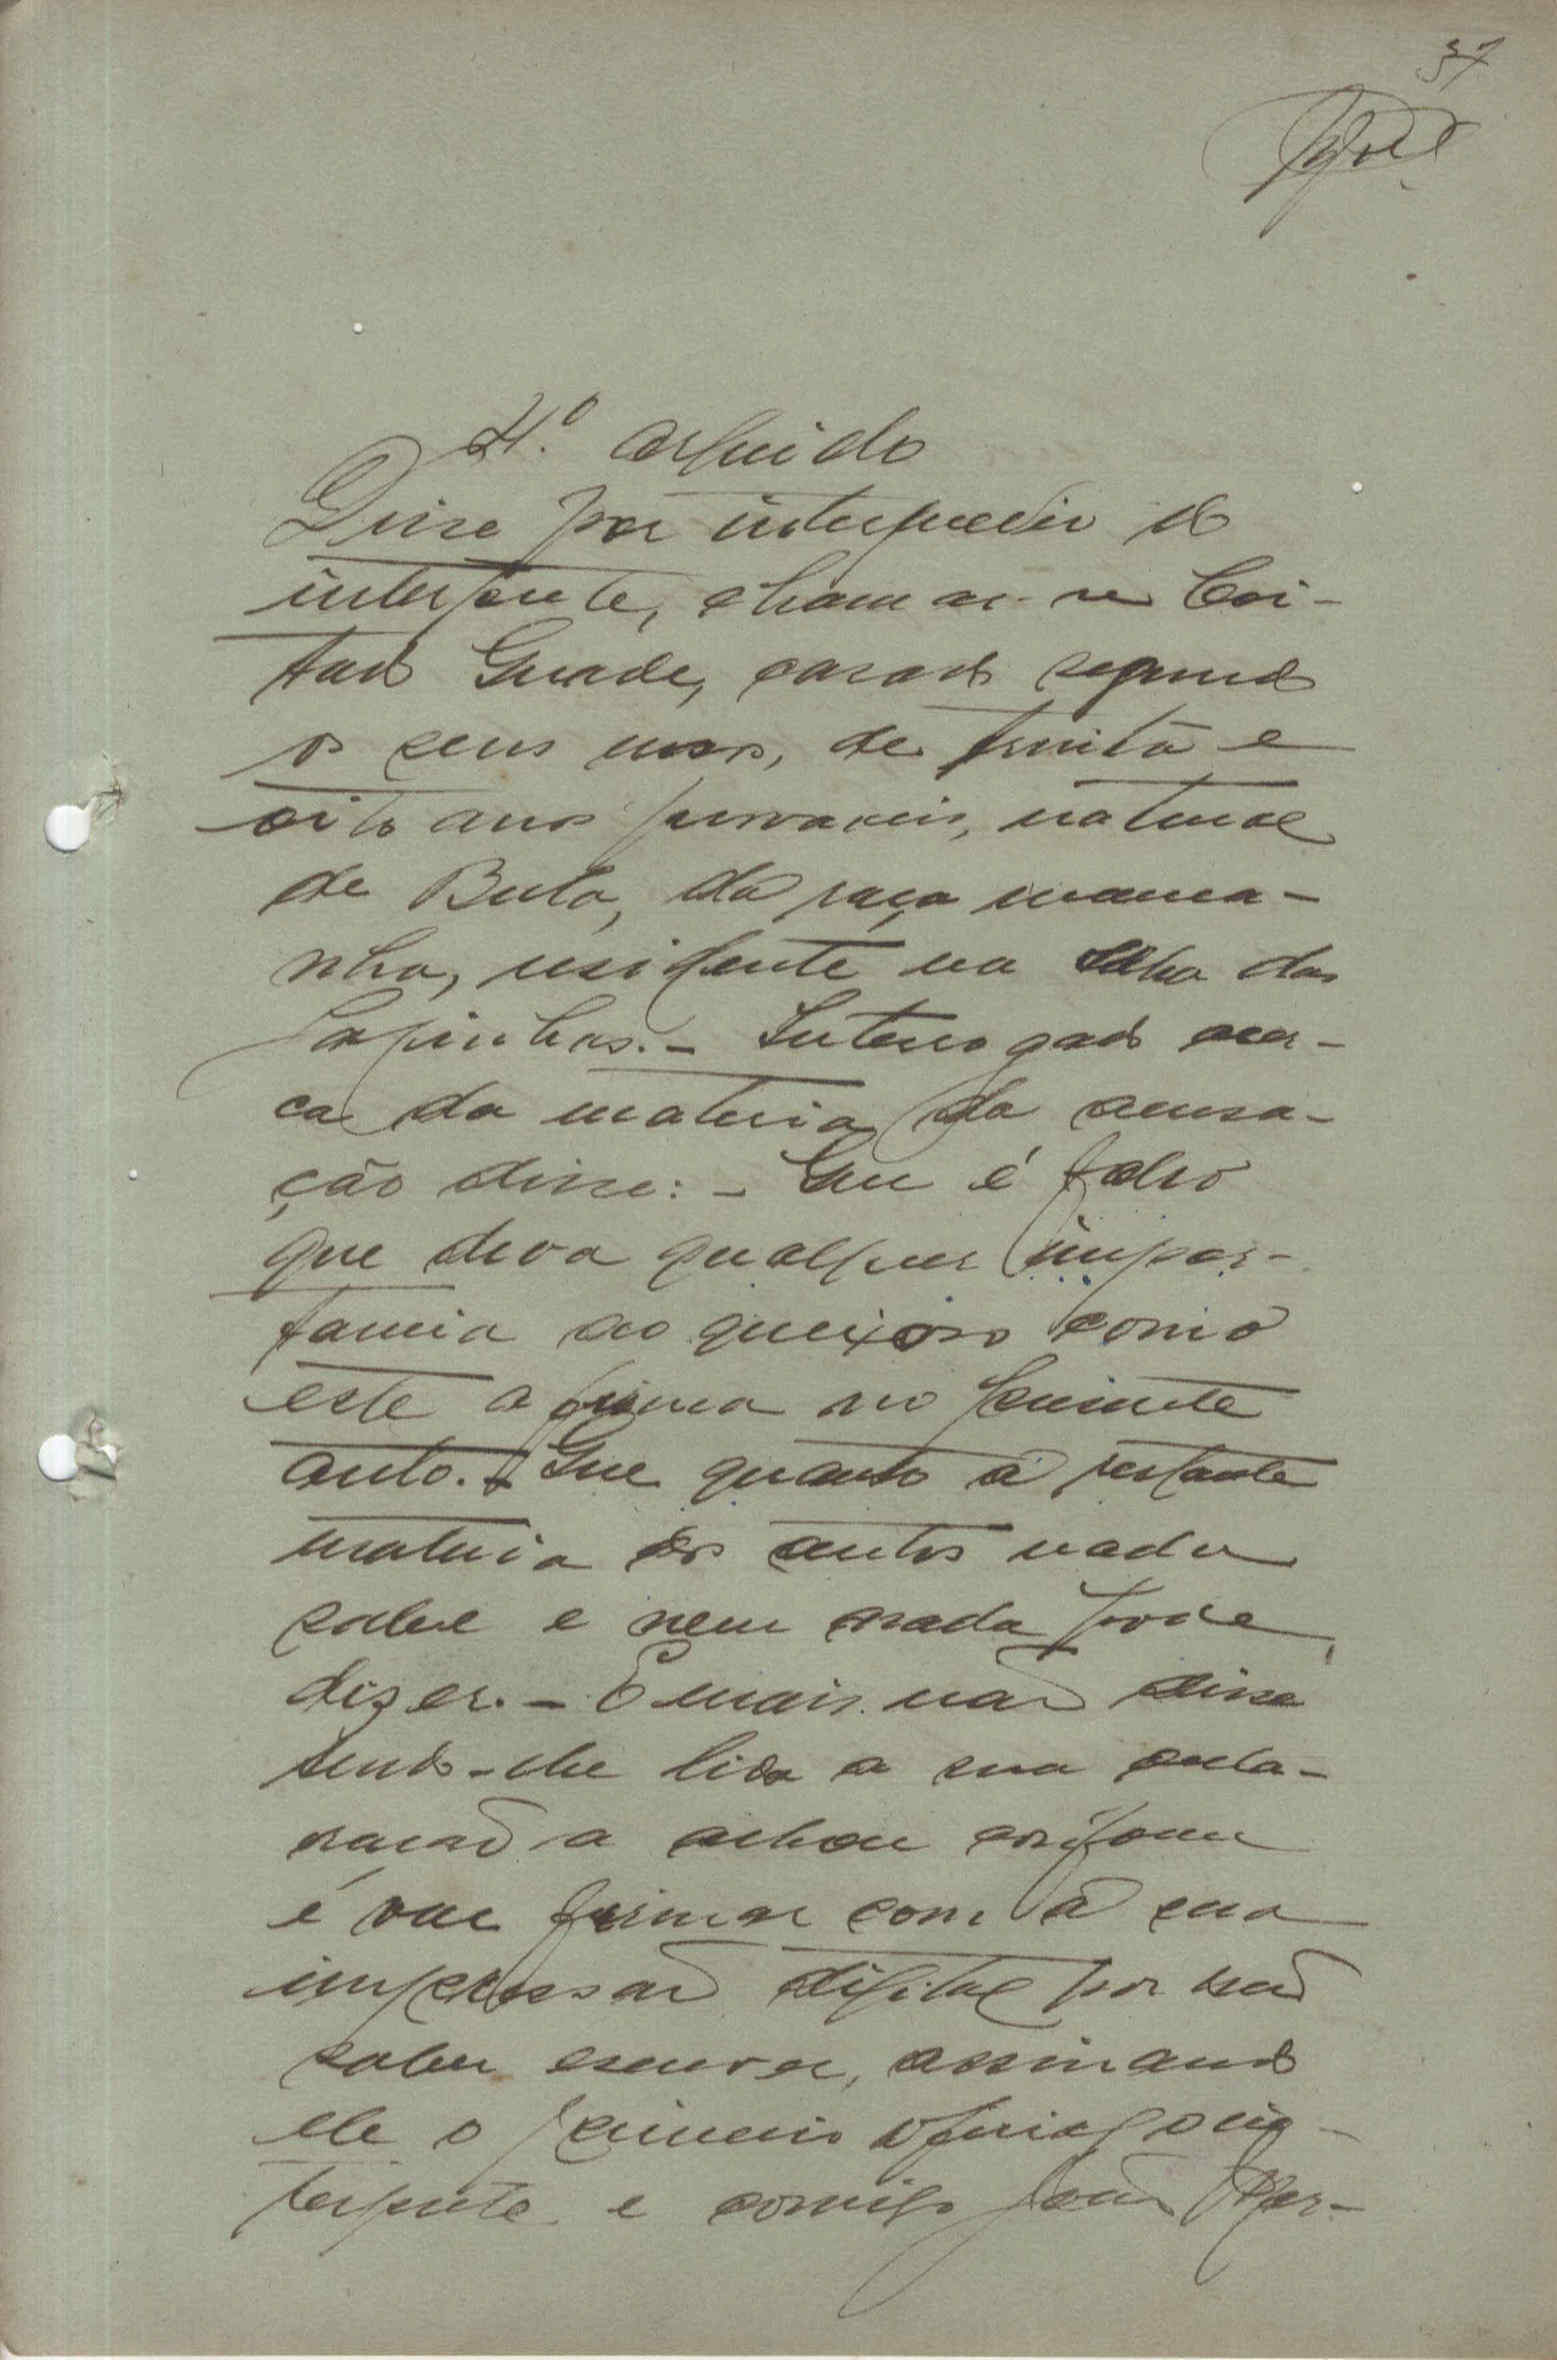 37
4.º arguido
Disse por intermedio do
interprete, chamar-se Coi-
tado Guade, casado segundo
os seus usos, de trinta e
oito anos provaveis, natural
de Bula, da raça manca-
nha, residente na Ilha das
Galinhas. - Interrogado acer-
ca da materia da acusa-
ção disse: - Que é falso
que deva qualquer impor-
tancia ao queixoso como
este afirma no presente
auto. - Que quanto á restante
materia dos autos nada
sabe e nem nada pode
dizer. - E mais não disse
sendo-lhe lida a sua decla-
ração a achou conforme
e vae firmar com a sua
impressão digital por não
saber escrever, assinando
ele o primeiro oficial o in-
terprete e comigo João